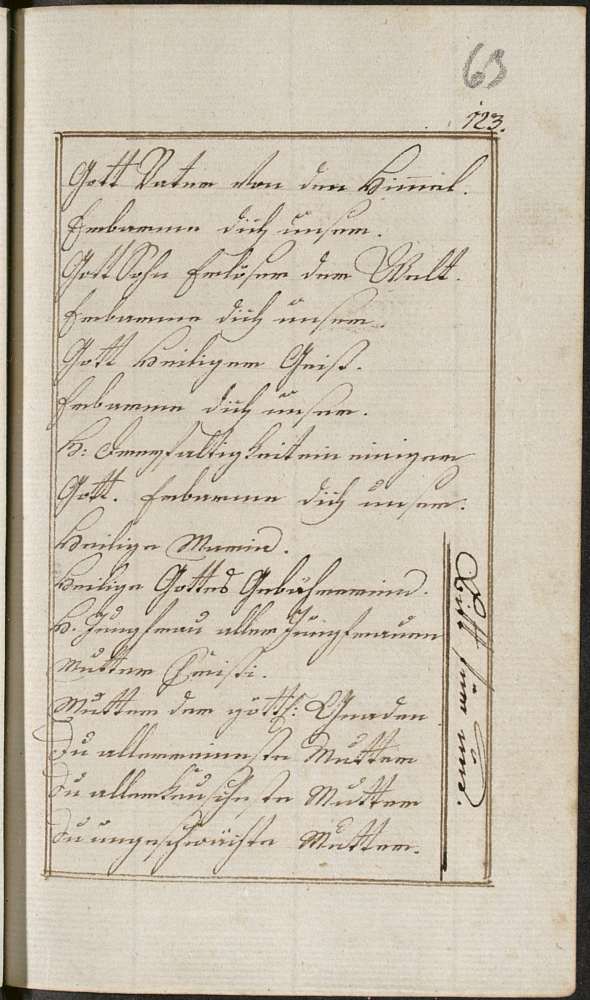 63
123.
Gott Vater Von den Himel.
Erbarme dich unser.
Gott Sohn Erlöser der Welt.
Erbarme dich unser.
Gott Heiliger Geist.
Erbarme dich unser.
H: Dreyfaltigkeit ein einiger
Gott. Erbarme dich unser.
Heilige Maria.
Heilige Gottes Gebährerin.
H. Jungfrau aller Jungfrauen
Mutter Christi.
Mutter der göttl: Gnaden
Du allerreineste Mutter
Du allerkeuscheste Mutter
Du ungeschwächte Mutter.
Bitt für uns.